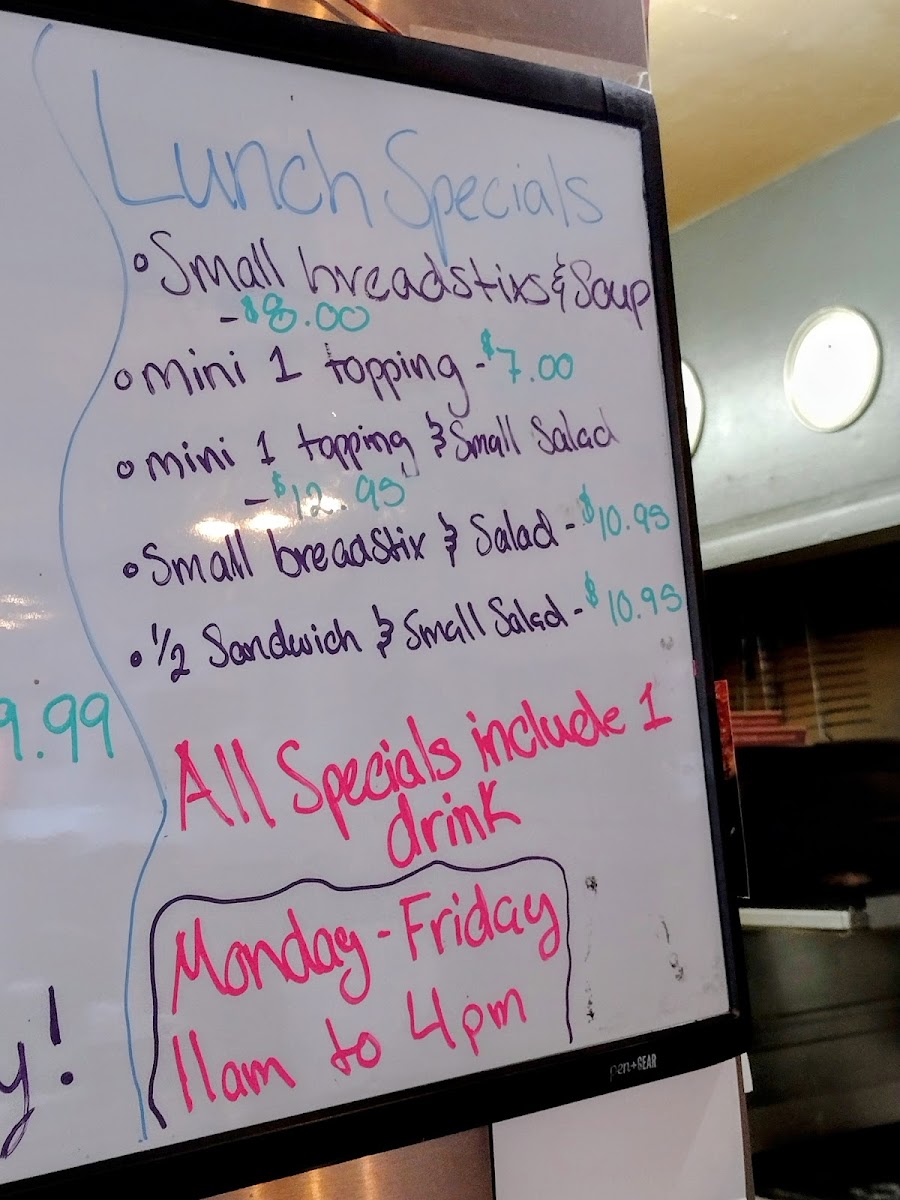 Lunch Specials
• Small breadstixs & Soup
- $8.00
• mini 1 topping - $7.00
• mini 1 topping & Small Salad
- $12.95
• Small breadstix & Salad - $10.95
• 1/2 Sandwich & Small Salad - $10.95
9.99
All Specials include 1
drink
Monday - Friday
11am to 4pm
y!
pen+GEAR